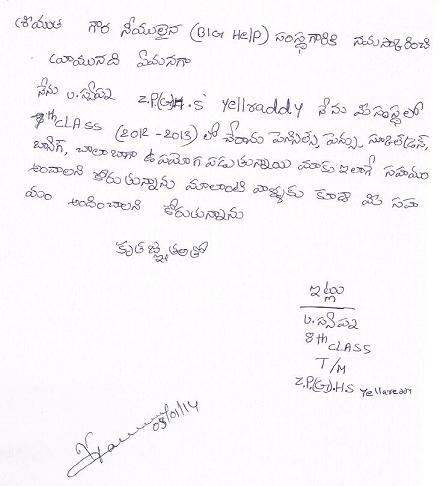 శ్రీయుత గౌర నీయులైన (BIG Help) సంస్థగారికి నమస్కారించి
వ్రాయునది ఏమనగా
నేను U. Z.P(G)H.S Yellraddy నేను మీ సంస్థలో
8th CLASS (2012 - 2013) లో చేరాను పెన్సిల్స్, పెన్ను,
బ్యాగ్, చాలా బాగా ఉపయోగ పడుతున్నాయి మాకు ఇలాగే సహయం
అందాలని కోరుతున్నాను మాలాంటి వాళ్ళకు కూడా మీ సహా
యం అందించాలని కోరుతున్నాను
కృతజ్ఞతలతో
ఇట్లు
8th CLASS
T/M
Z.P.(G).HS Yellareddy
03/01/14